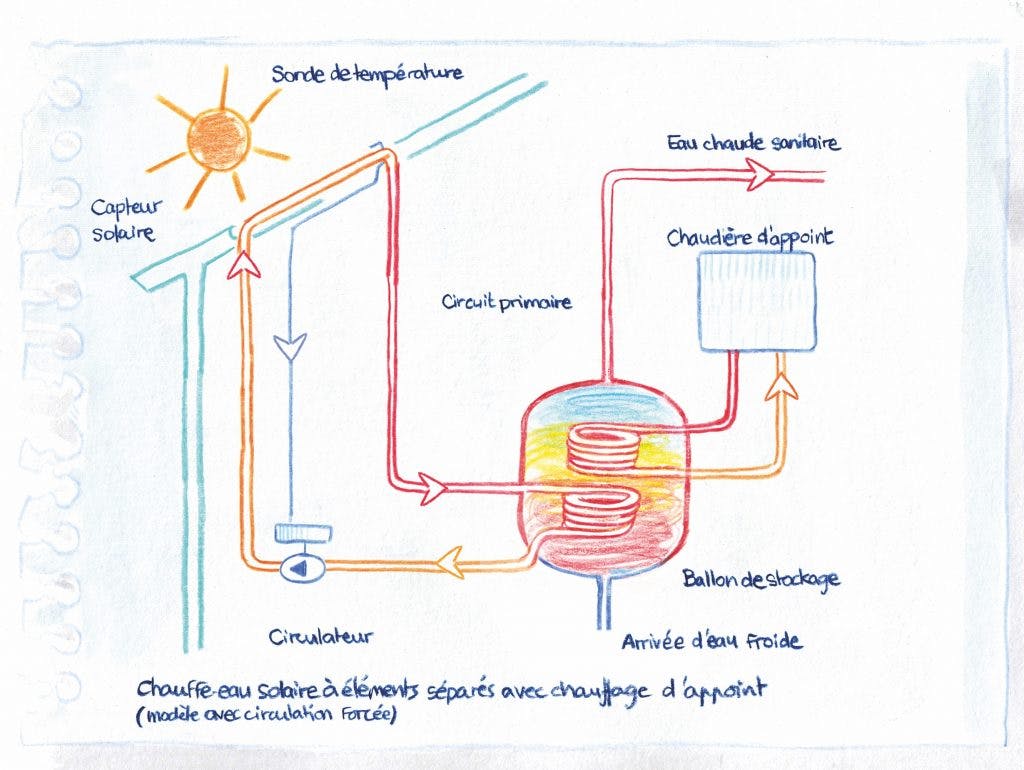 Sonde de température
Eau chaude sanitaire
Capteur
solaire
Chaudière d'appoint
Circuit primaire
Ballon de stockage
Circulateur
Arrivée d'eau froide
Chauffe-eau solaire à éléments séparés avec chauffage d'appoint
(modèle avec circulation forcée)